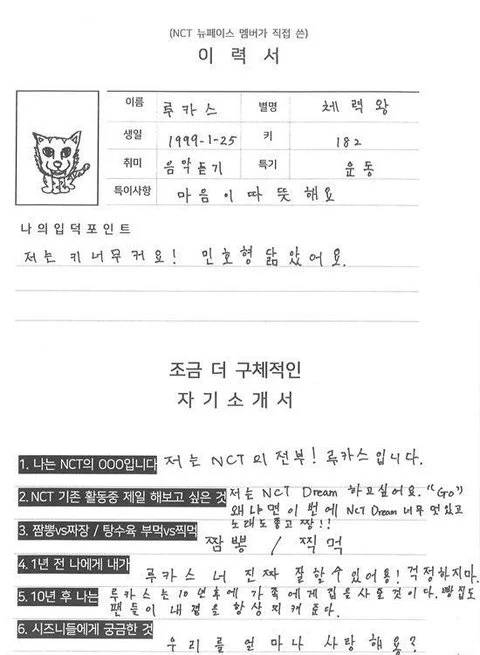 (NCT 뉴페이스 멤버가 직접 쓴)
이 력 서
이름 루카스 별명 체력왕
생일 1999-1-25 키 182
취미 음악듣기 특기 운동
특이사항 마음이 따뜻해요
나의입덕포인트
저는 키 너무 커요! 민호형 닮았어요.
조금 더 구체적인
자기소개서
1. 나는 NCT의 OOO입니다 저는 NCT의 전부! 루카스입니다.
2. NCT 기존 활동중 제일 해보고 싶은 것 저는 NCT Dream 하고싶어요. "Go"
왜냐면 이번에 NCT Dream 너무 멋있고
노래도 좋고 짱!!
3. 짬뽕vs짜장 / 탕수육 부먹vs찍먹
짬뽕 / 찍먹
4. 1년 전 나에게 내가
루카스 너 진짜 잘할 수 있어용! 걱정하지마.
5. 10년 후 나는 루카스는 10년후에 가족에게 집을 사 줄 것이다. 빵집도
팬들이 내 곁을 항상 지켜 준다.
6. 시즈니들에게 궁금한 것
우리를 얼마나 사랑해용?